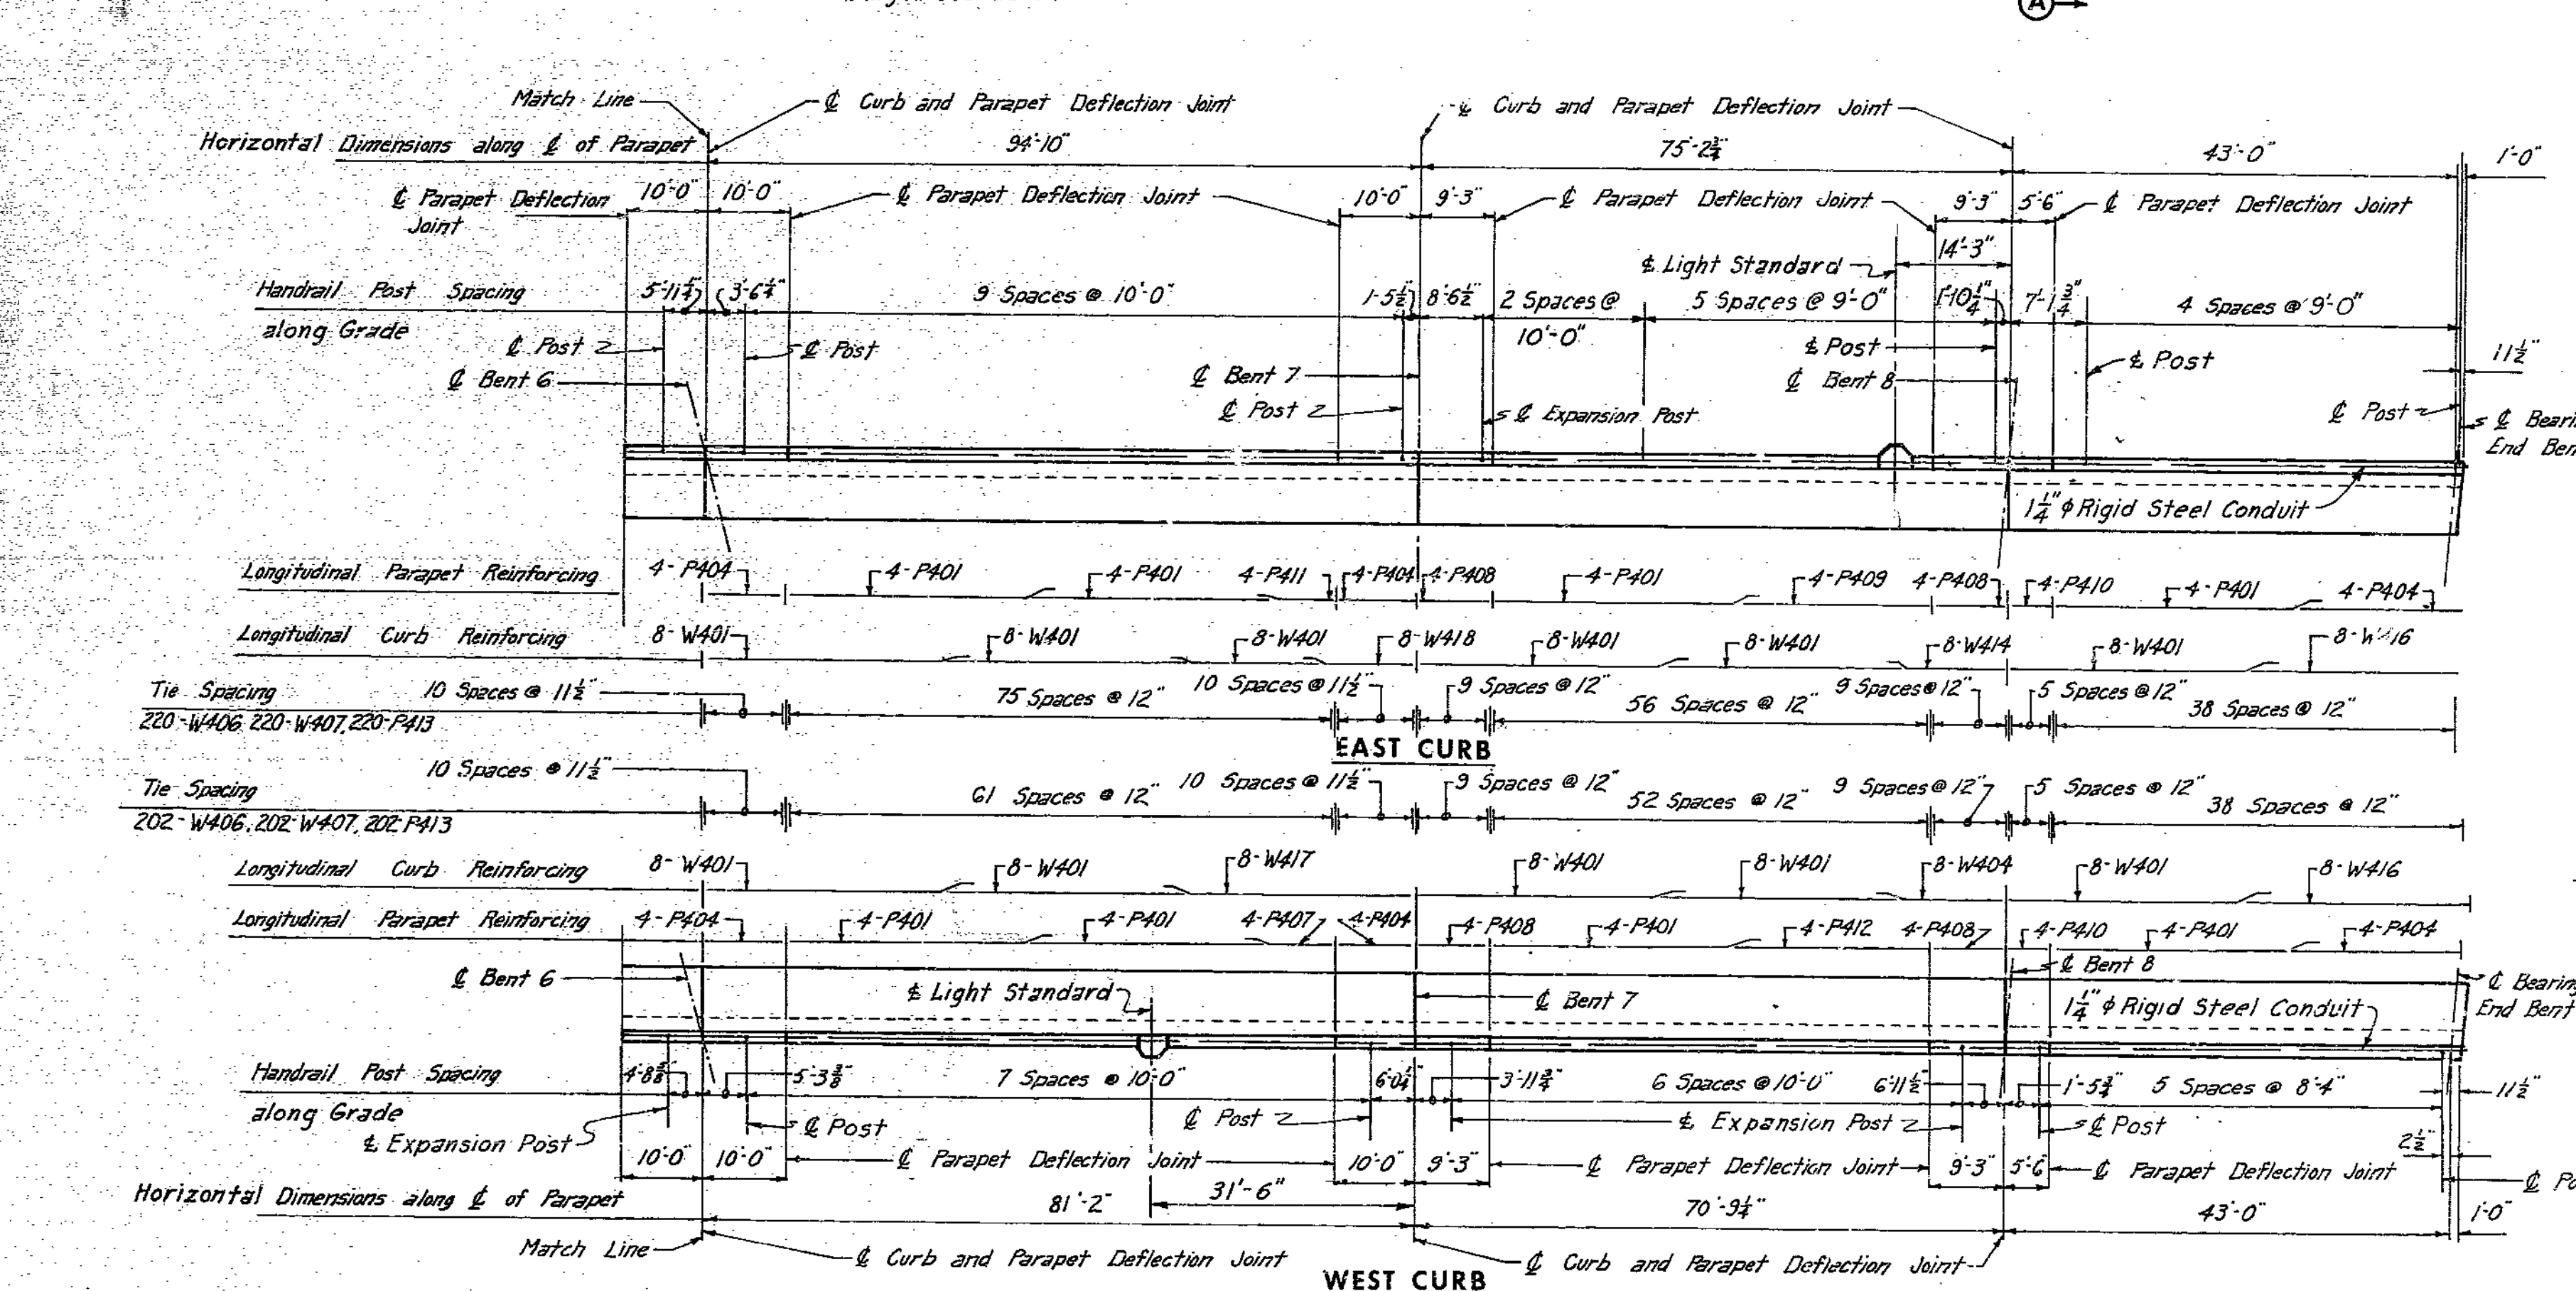 A
Match Line
℄ Curb and Parapet Deflection Joint
℄ Curb and Parapet Deflection Joint
Horizontal Dimensions along ℄ of Parapet
94'-10"
75'-2¾"
43'-0"
1'-0"
℄ Parapet Deflection Joint
10'-0"
10'-0"
℄ Parapet Deflection Joint
10'-0"
9'-3"
℄ Parapet Deflection Joint
9'-3"
5'-6"
℄ Parapet Deflection Joint
14'-3"
℄ Light Standard
Handrail Post Spacing
along Grade
5'-11¼"
3'-6¼"
9 Spaces @ 10'-0"
1'-5½"
8'-6½"
2 Spaces @
10'-0"
5 Spaces @ 9'-0"
1'-10¼"
7'-1¾"
4 Spaces @ 9'-0"
℄ Post
℄ Post
℄ Post
℄ Post
11½"
℄ Bent 6
℄ Bent 7
℄ Bent 8
℄ Post
℄ Expansion Post
℄ Post
℄
End
1¼" ϕ Rigid Steel Conduit
Longitudinal Parapet Reinforcing
4-P404
4-P401
4-P401
4-P411
4-P404
4-P408
4-P401
4-P409
4-P408
4-P410
4-P401
4-P404
Longitudinal Curb Reinforcing
8-W401
8-W401
8-W401
8-W418
8-W401
8-W401
8-W414
8-W401
8-W416
Tie Spacing
220-W406, 220-W407, 220-P413
10 Spaces @ 11½"
75 Spaces @ 12"
10 Spaces @ 11½"
9 Spaces @ 12"
56 Spaces @ 12"
9 Spaces @ 12"
5 Spaces @ 12"
38 Spaces @ 12"
EAST CURB
Tie Spacing
202-W406, 202-W407, 202-P413
10 Spaces @ 11½"
61 Spaces @ 12"
10 Spaces @ 11½"
9 Spaces @ 12"
52 Spaces @ 12"
9 Spaces @ 12"
5 Spaces @ 12"
38 Spaces @ 12"
Longitudinal Curb Reinforcing
8-W401
8-W401
8-W417
8-W401
8-W401
8-W404
8-W401
8-W416
Longitudinal Parapet Reinforcing
4-P404
4-P401
4-P401
4-P407
4-P404
4-P408
4-P401
4-P412
4-P408
4-P410
4-P401
4-P404
℄ Bent 6
℄ Light Standard
℄ Bent 7
℄ Bent 8
1¼" ϕ Rigid Steel Conduit
℄ Bearing
End Bent
Handrail Post Spacing
along Grade
4'-8⅝"
5'-3⅜"
7 Spaces @ 10'-0"
6'-0¼"
3'-11¾"
6 Spaces @ 10'-0"
6'-11½"
1'-5¾"
5 Spaces @ 8'-4"
11½"
℄ Expansion Post
℄ Post
℄ Post
℄ Expansion Post
℄ Post
2½"
10'-0"
10'-0"
℄ Parapet Deflection Joint
10'-0"
9'-3"
℄ Parapet Deflection Joint
9'-3"
5'-6"
℄ Parapet Deflection Joint
℄
Horizontal Dimensions along ℄ of Parapet
81'-2"
31'-6"
70'-9¼"
43'-0"
1'-0"
Match Line
℄ Curb and Parapet Deflection Joint
℄ Curb and Parapet Deflection Joint
WEST CURB